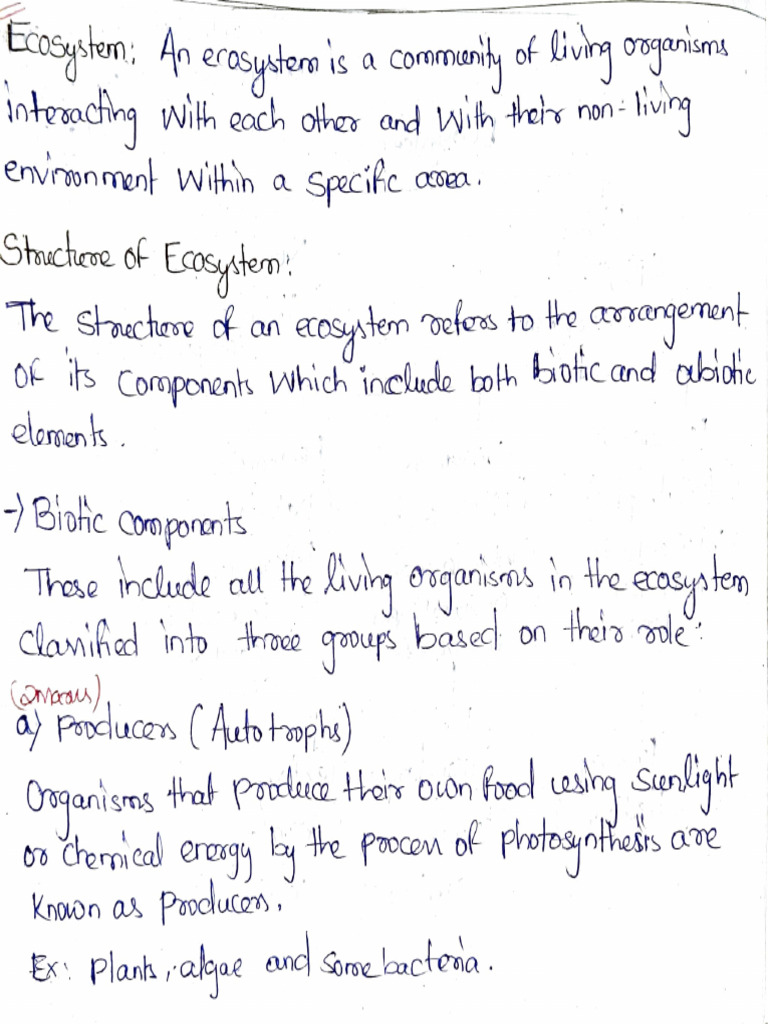 Ecosystem: An ecosystem is a community of living organisms
interacting with each other and with their non-living
environment within a specific area.
Structure of Ecosystem:
The structure of an ecosystem refers to the arrangement
of its components which include both biotic and abiotic
elements.
→ Biotic components
These include all the living organisms in the ecosystem
classified into three groups based on their role:
(2marks)
a) Producers (Autotrophs)
Organisms that produce their own food using sunlight
or chemical energy by the process of photosynthesis are
known as producers.
Ex: Plants, algae and some bacteria.